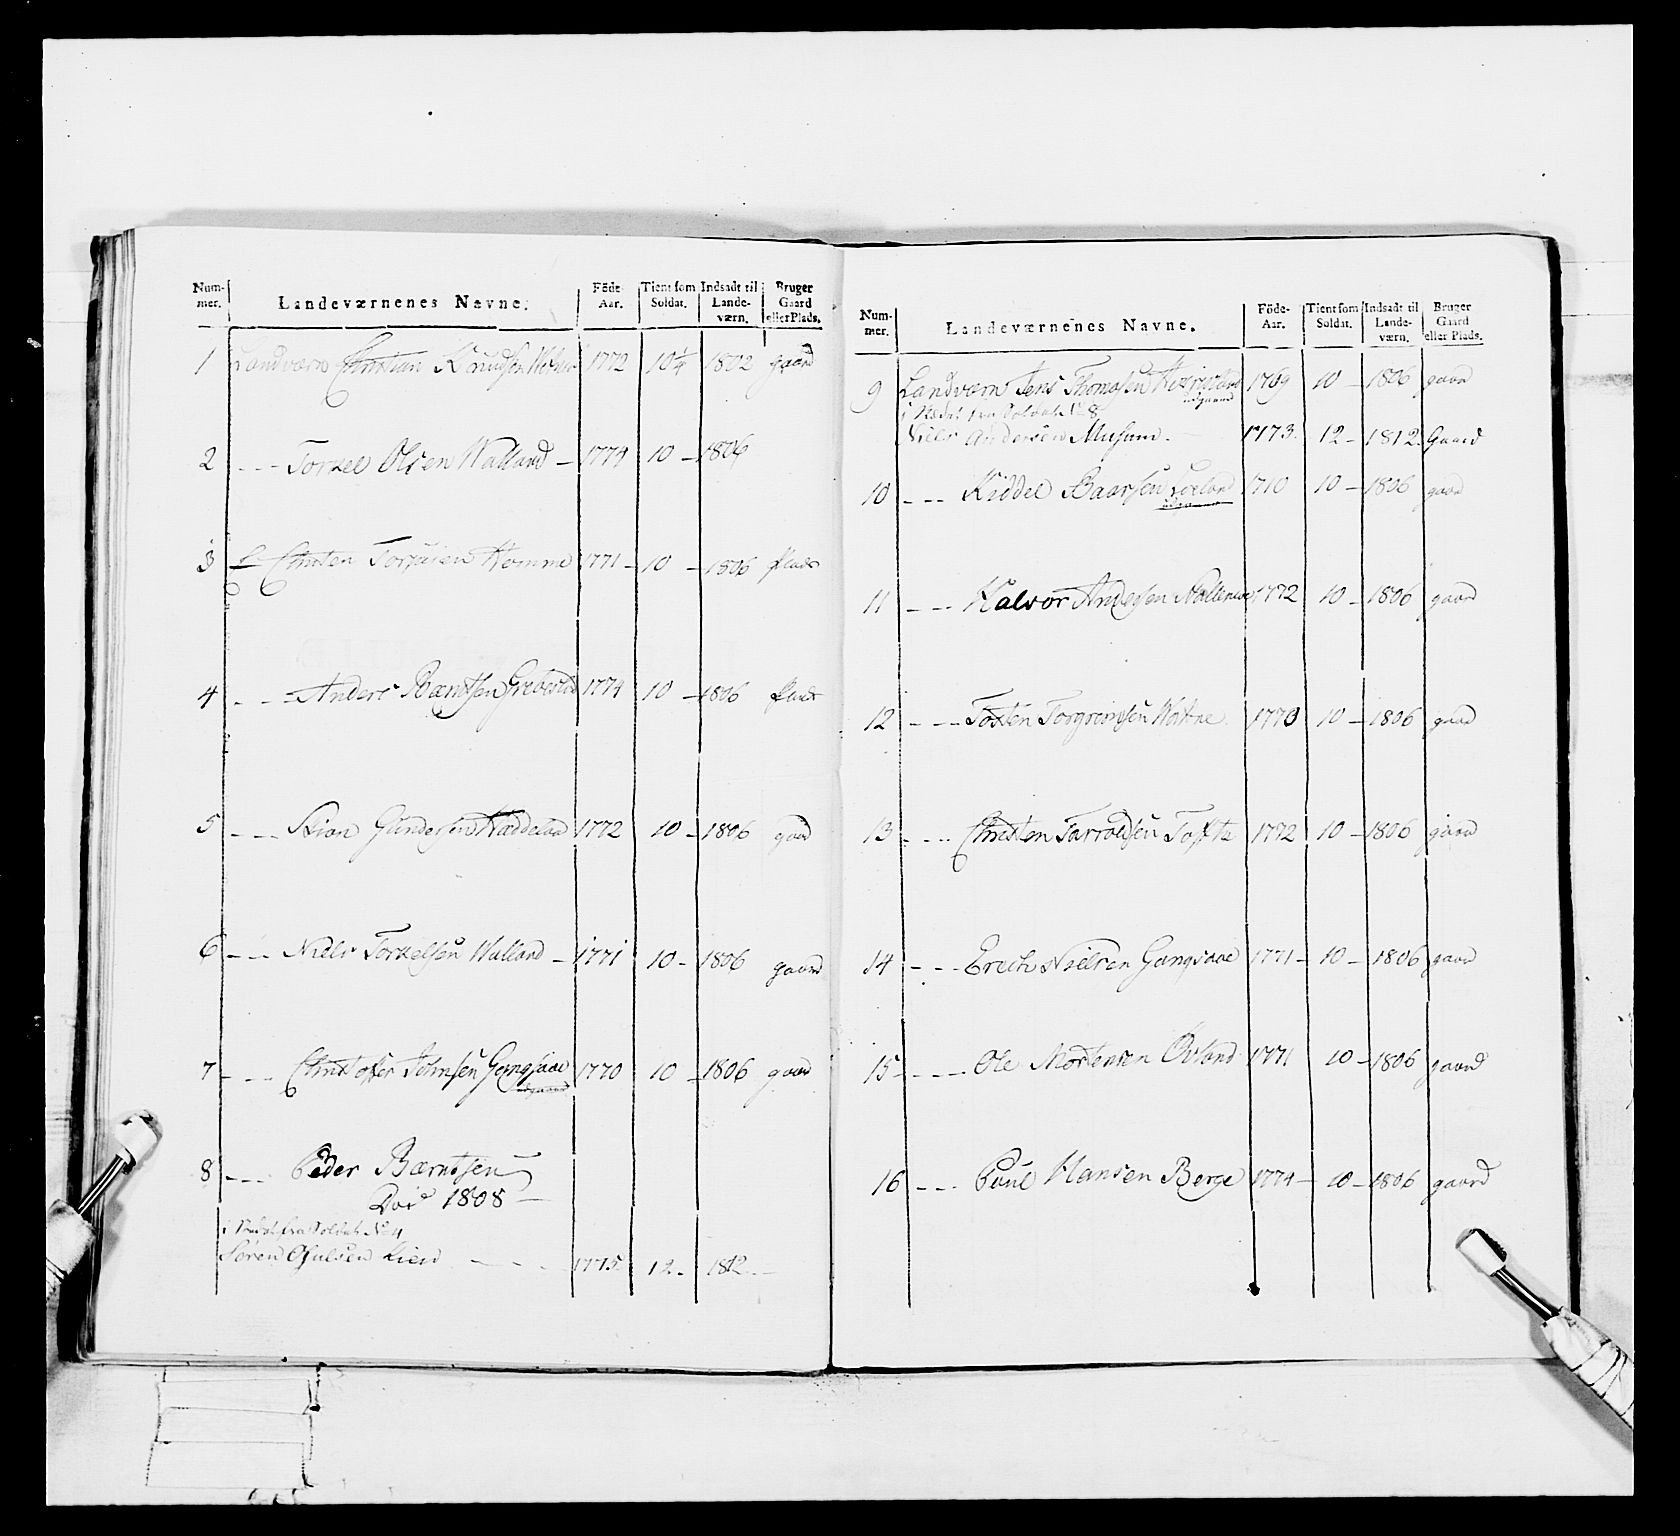 Num-
mer.
Landeværnenes Navne.
Föde-
Aar.
Tient som
Soldat.
Indsadt til
Lande-
værn.
Bruger
Gaard
eller Plads.
1 Landværn Christian Knudsen 1772 10¼ 1802 gaard
2 - - - Torkel Olsen Walland - 1774 10 - 1806
3 Christen Homme 1771 - 10 - 1806 Plads
4 - - - Anders Bærntsen Grebestad 1774 10 - 1806 Plads
5 - - - Gundersen 1772 10 - 1806 gaad
6 - - - Niels Torkelsen Walland - 1771 10 - 1806 gaard
7 - - - Christoffer Gangsaae 1770 10 - 1806 gaard
udgaaed
8 - - - Peder Bærntsen
Død 1808 -
i Stedet fra Soldat No 4
Søren Lien - - - 1775. 12 - 1812 -
Num-
mer.
Landeværnenes Navne.
Föde-
Aar.
Tient som
Soldat.
Indsadt til
Lande-
værn.
Bruger
Gaard
eller Plads.
9 Landværn Jens Thomasen 1769 10 - 1806 gaard
udgaaed
i Stedet fra Soldat No 8
Niels Andersen Musum. - 1773. 12 - 1812. Gaard
10 - - - Kiddel Baarsen 1710 10 - 1806 gaard
11 - - - Halvor Andersen 1772 10 - 1806 gaard
12 - - - Tosten Torgrimsen 1770 10 - 1806 gaard
13 - - - Christen Tarroldsen Tofte 1772 10 - 1806 gaard
14 - - - Erich Nielsen Gangsaae 1771 - 10 - 1806 gaard
15 - - - Ole Mortensen Øvland 1771 10 - 1806 gaard
16 - - - Poul Hansen Berge 1774 - 10 - 1806 gaard